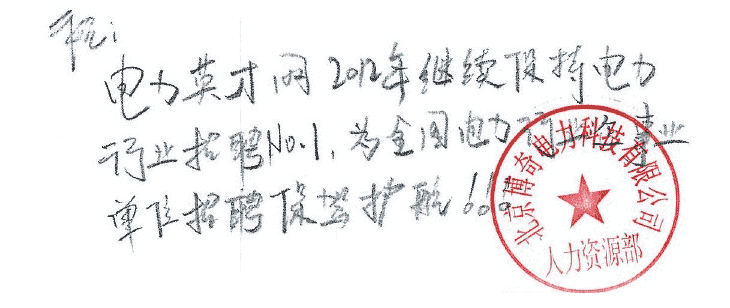 祝：
电力英才网2012年继续保持电力
行业招聘No.1，为全国电力行业各事业
单位招聘保驾护航！！！
北京博奇电力科技有限公司
人力资源部